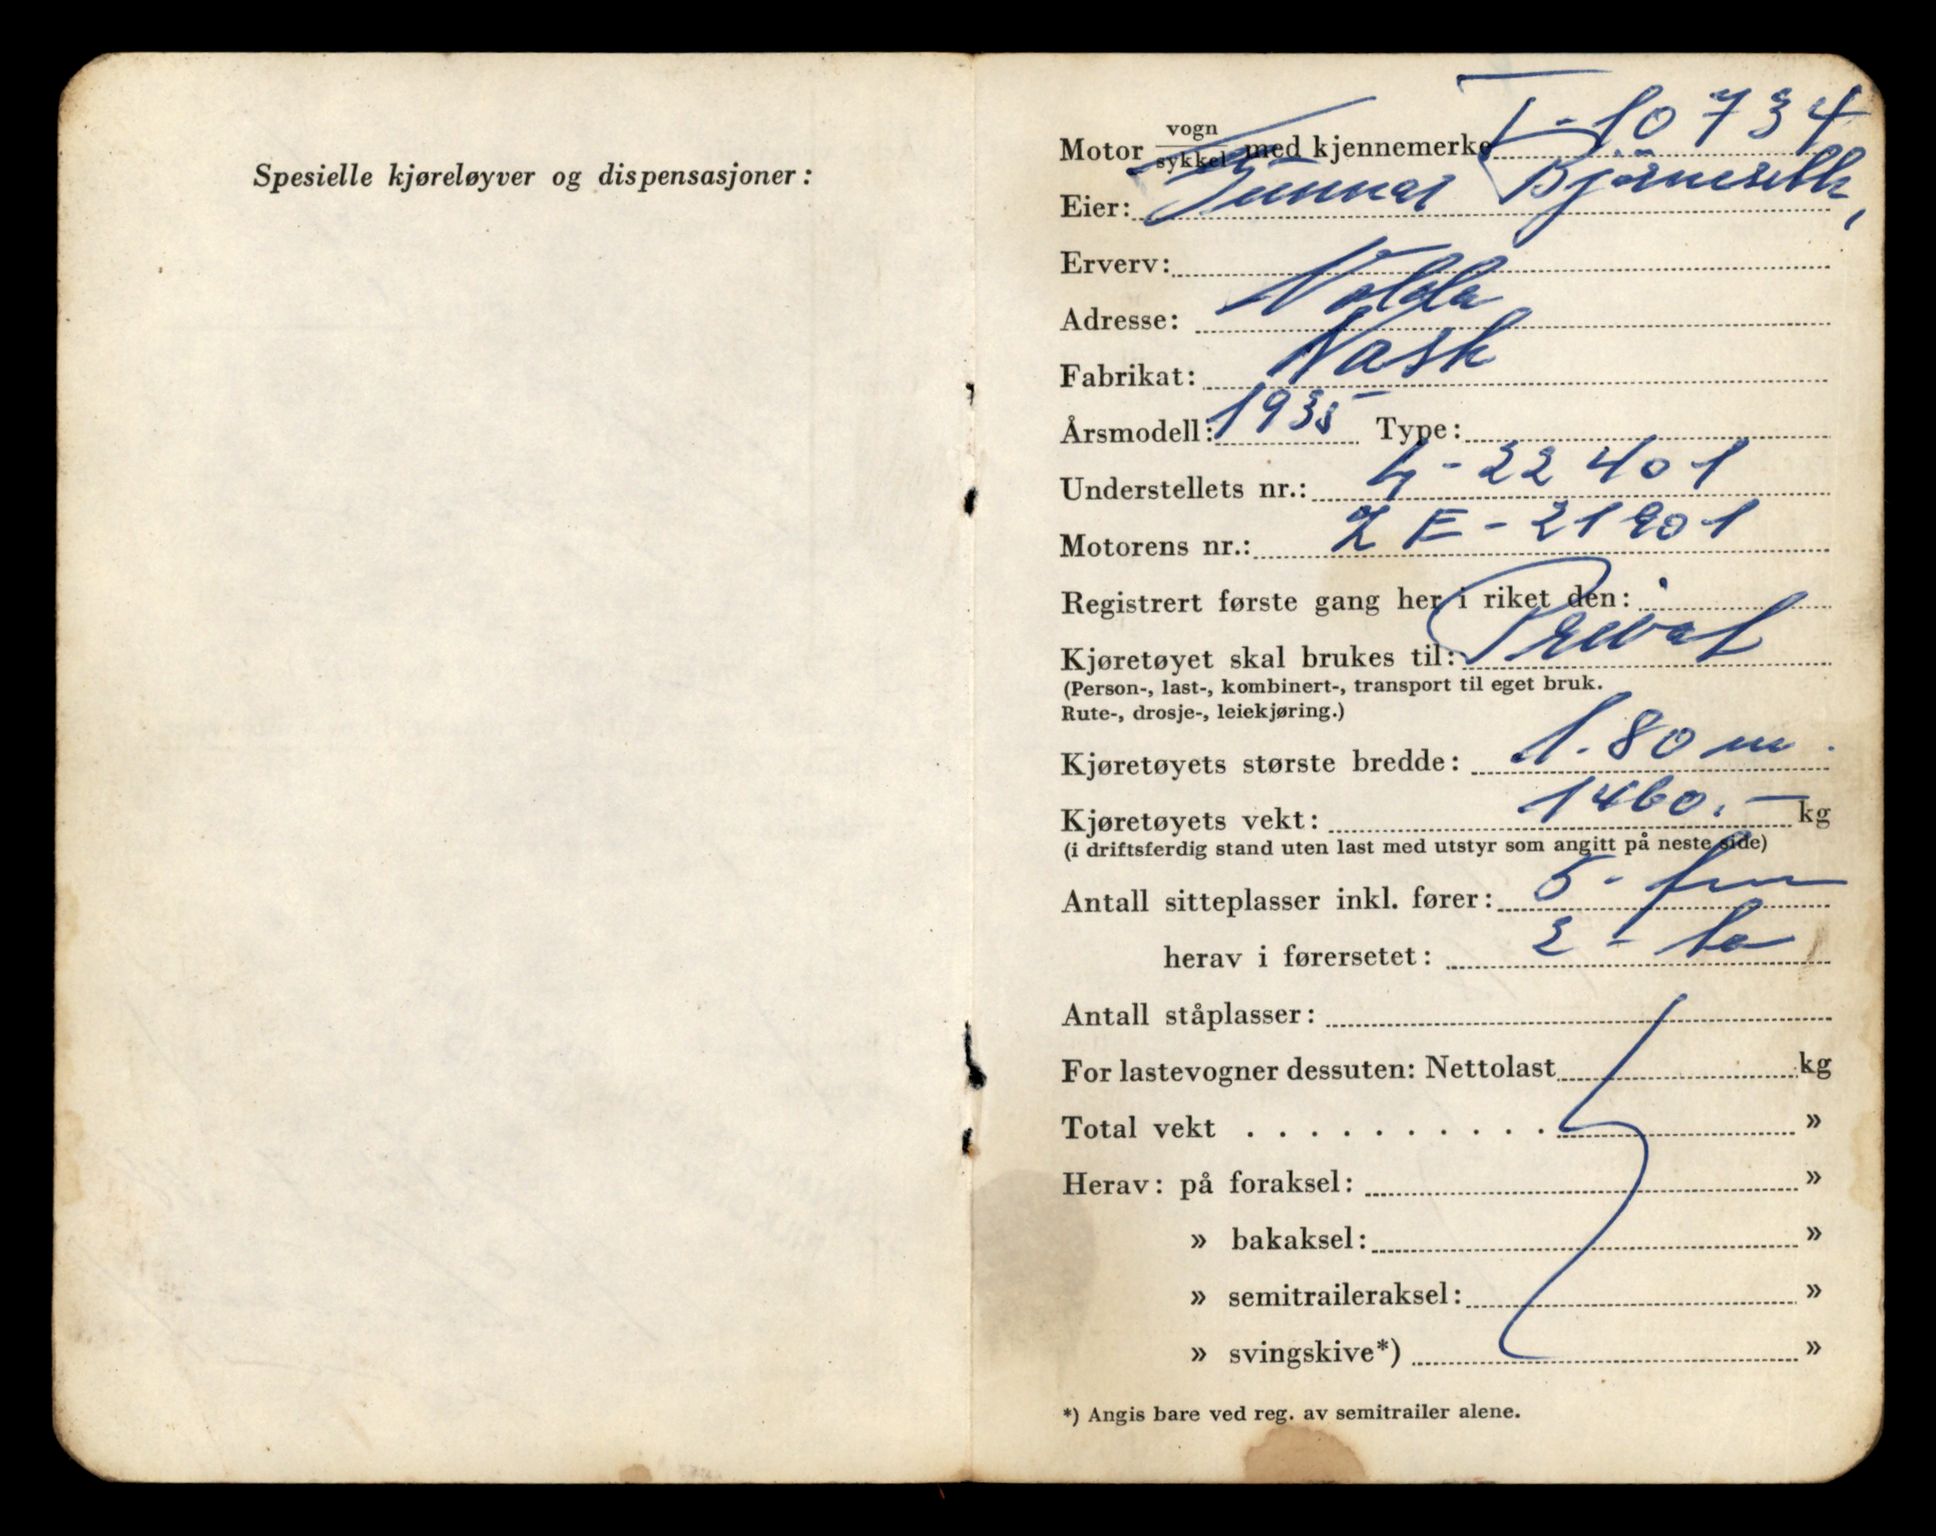 Spesielle kjøreløyver og dispensasjoner:
Motor vogn/sykkel med kjennemerke T-10734
Eier: Gunnar
Erverv:
Adresse: Volda
Fabrikat: Nash
Årsmodell: 1935 Type:
Understellets nr.: L-22401
Motorens nr.: LE-21901
Registrert første gang her i riket den:
Kjøretøyet skal brukes til: Privat
(Person-, last-, kombinert-, transport til eget bruk.
Rute-, drosje-, leiekjøring.)
Kjøretøyets største bredde: 1.80 m.
Kjøretøyets vekt: 1460.- kg
(i driftsferdig stand uten last med utstyr som angitt på neste side)
Antall sitteplasser inkl. fører: 5 - fem
herav i førersetet: 2 - to
Antall ståplasser:
For lastevogner dessuten: Nettolast kg
Total vekt . . . . . . . . . . »
Herav: på foraksel: »
» bakaksel: »
» semitraileraksel: »
» svingskive*) »
*) Angis bare ved reg. av semitrailer alene.